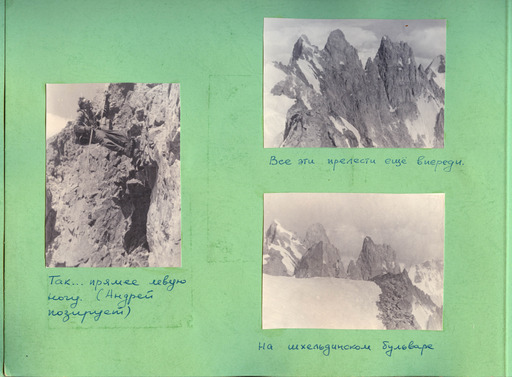 Все эти прелести ещё впереди.
Так... прямее левую
ногу. (Андрей
позирует)
На шхельдинском бульваре